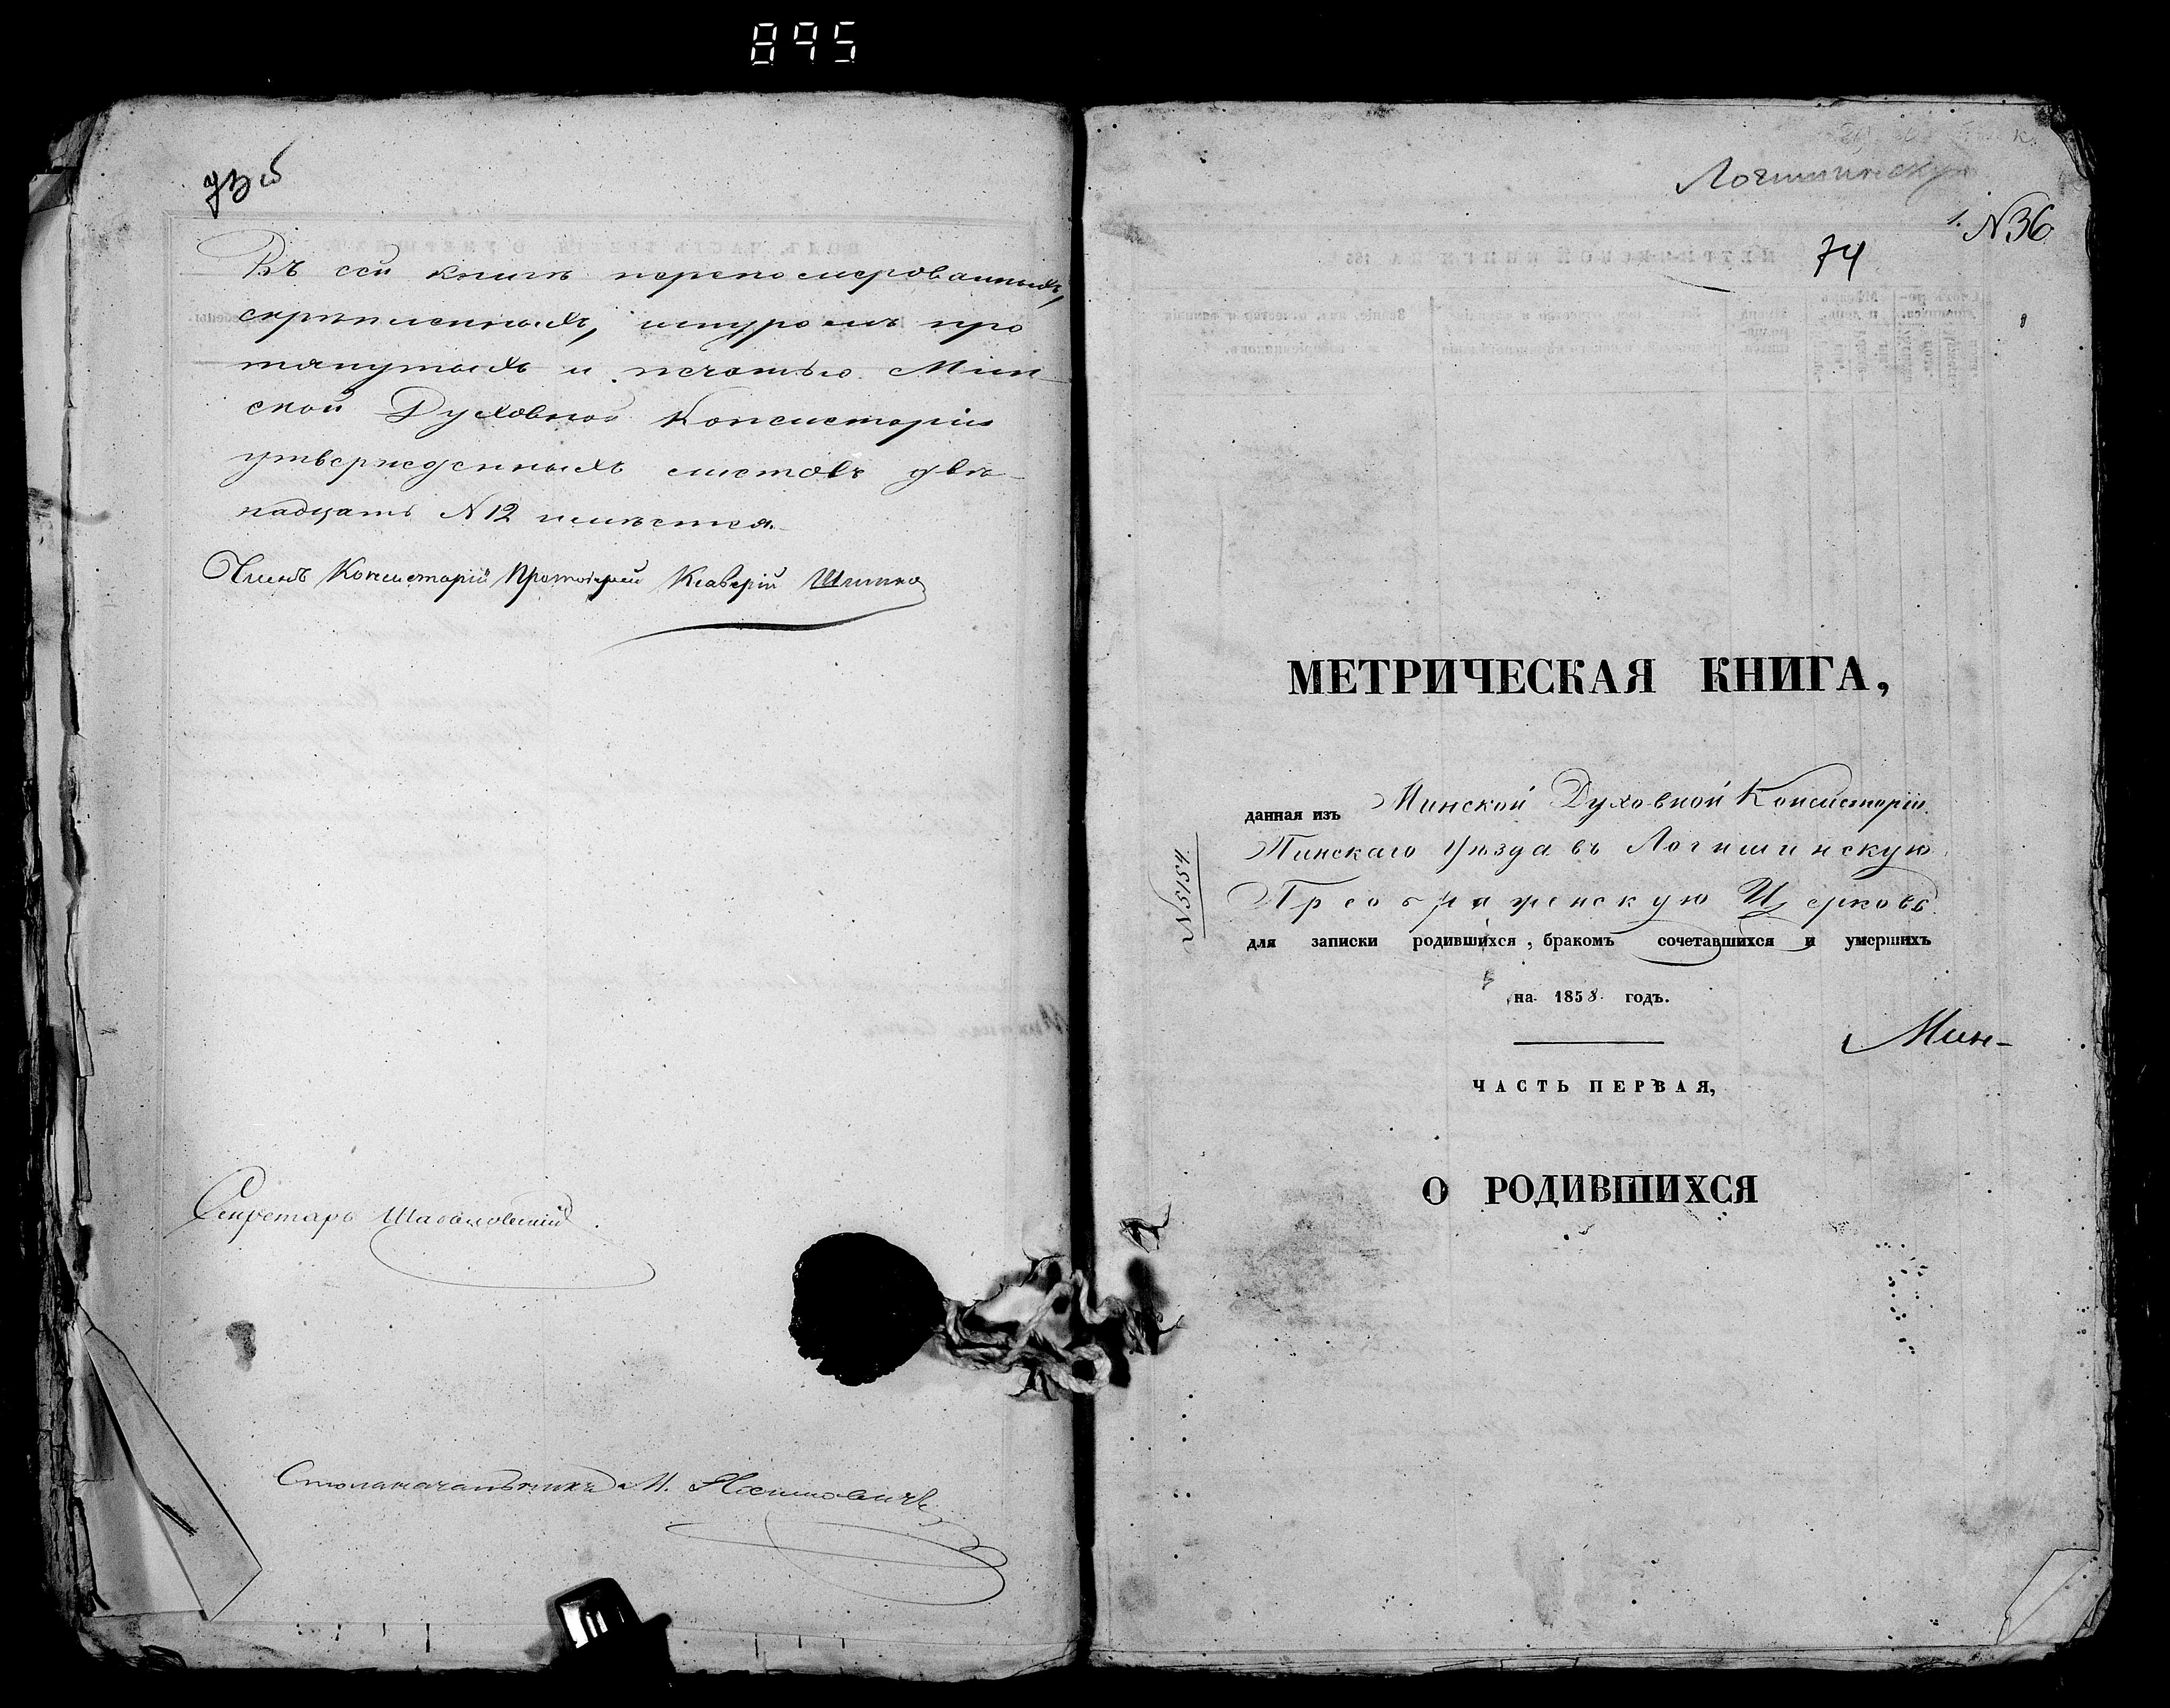 895
73 об
Въ сей книгѣ перепомерованныхъ,
скрѣпленныхъ, шнуромъ про
тянутыхъ и печатью Мин-
ской Духовной Консисторіи
утвержденныхъ листовъ двѣ-
надцать N 12 имѣется.
Членъ Консисторіи Протоіерей Ксаверій
Секретарь
Столоначальникъ М.
Логишинскую
1. N 36
74
МЕТРИЧЕСКАЯ КНИГА,
данная изъ Минской Духовной Консисторіи
Пинскаго Уѣзда въ Логишинскую
Преображенскую Церковь
N 5154
для записки родившихся, бракомъ сочетавшихся и умершихъ
на 1858 годъ.
Мин-
ЧАСТЬ ПЕРВАЯ,
О РОДИВШИХСЯ